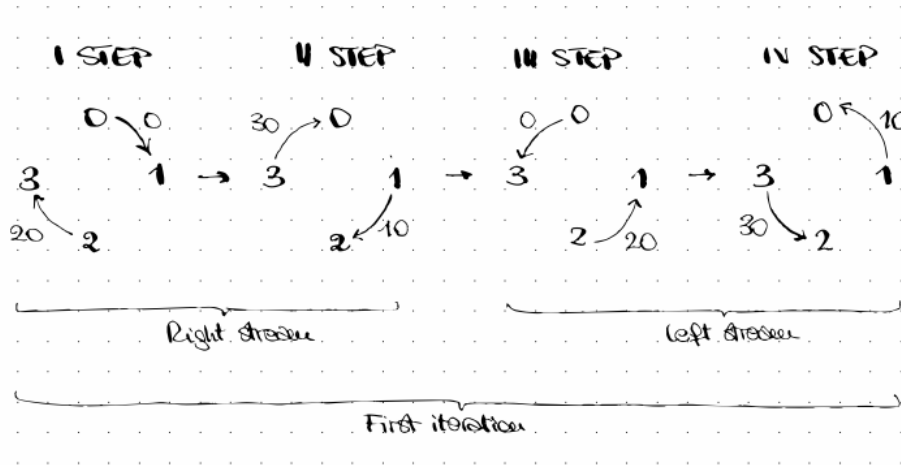 I STEP II STEP III STEP IV STEP
0 0 30 0 0 0 0 10
3 1 → 3 1 → 3 1 → 3 1
20 2 2 10 2 20 30 2
Right stream Left stream
First iteration